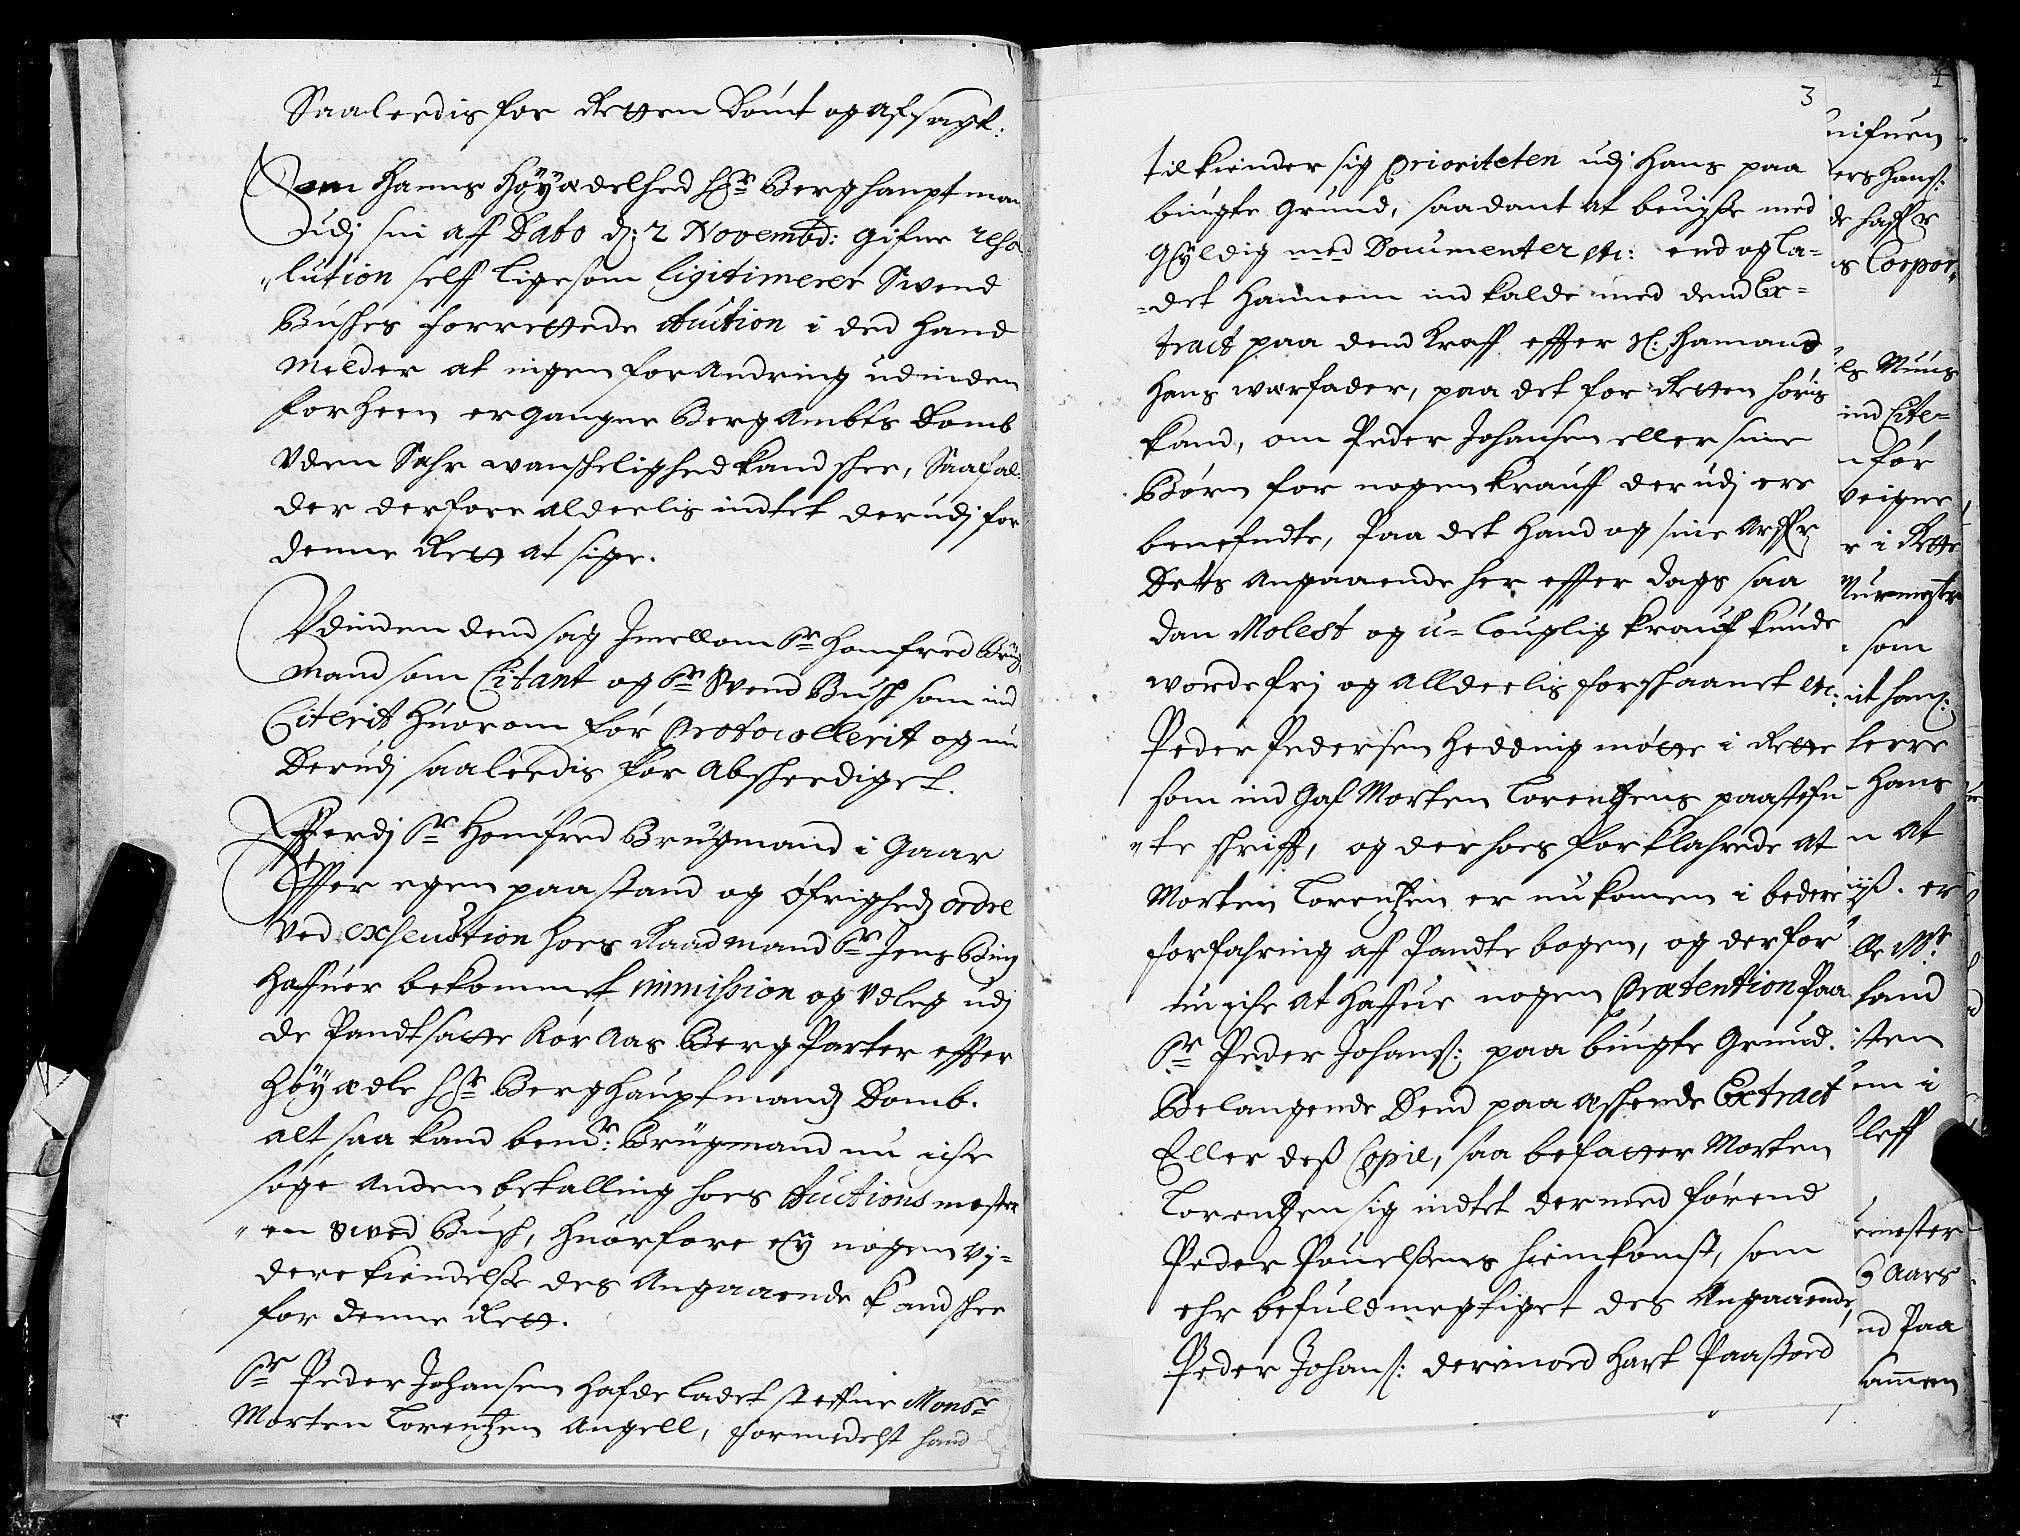 Saaleedis for Retten Dömt og afsagt:
Som Hanns Höyædelhed Hr Berghauptman
udj sin aff Dato d: 2 Novembd: gifne reso
"lution self ligesom ligitimerer Swend
Busses forrettede Auction i ded hand
melder at ingen forandring udinden
forheen ergangne BergAmbts Domb
Uden Sehr wanskelighed kand skee, Saa fal-
der derfore aldeelis indtet derudj for
denne Rett at sige.
Udinden dend sag Imellom Sr Homfred Brüg
mand som Citant og Sr Svend Bush som ind
Citerit huorom för Protocollerit og nu
Derudj saaleedis for Absheediget.
Efterdj Sr Homfred Brugmand i Gaar
Effter egen paastand og Öfrigheds ordre
Ved exseuction hoes Raadmand Sr Jens Bing
Haffuer bekommet immission og Udleg udj
de Pandtsatte Rör Aas Berg Parter effter
Höyædle Hr Berghauptmands Domb.
alt saa kand bemr: Brügmand nu iche
söge anden betalling hoes Auctions mester
"en Swed Bush, huorfore ey nogen vj-
dere kiendelse des Angaaende kand skee
for denne Rett.
Sr Peder Johansen hafde ladet steffne Monsr
Morten Lorentzen Angell, formedelst hand
3
tilkiender sig Prioriteten udj Hans paa
büigte Grund, saadant at beuise med
Gyldig med Documenter etc: end og la-
-det Hannem ind kalde med dend Ex-
tract paa dend kraff effter Sl: Hamand
Hans werfader, paa det for Retten höris
kand, om Peder Johansen eller sine
Börn for nogen krauff derudj ere
benefndte, Paa det Hand og sine Arffr
Dets Angaaende her effter dags saa
dan Molest og u-louglig krauf kunde
worde frj og alldeelis forskaanet etc:
Peder Pedersen Hedding mötte i Rette
som ind Gaf Morten Lorentzens paastefn
"te skrifft, og derhoes forklahrede at
Morten Lorentzen er nu komen i bedere
forfahring aff Pandte bogen, og derfor
nu iche at haffue nogen Prætention Paa
Sr Peder Johans: paa büigte Grund.
Belangende Dend paa æskede Extract
Eller deß Copie, saa befatter Morten
Lorentzen sig indtet dermed förend
Peder Pouelßens hiemkomst, som
ehr befuldmegtiget des Angaaende,
Peder Johans: derimod Hart Paastoed